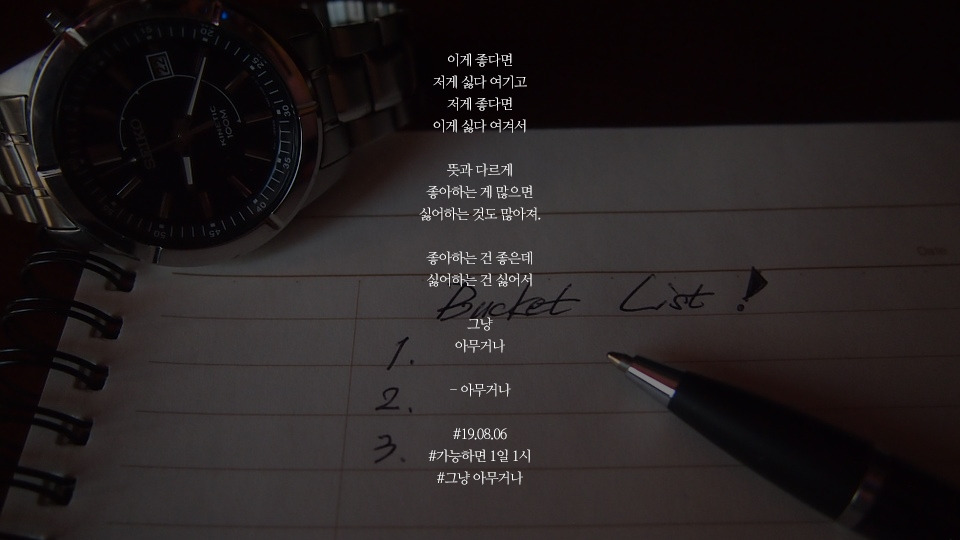 이게 좋다면
저게 싫다 여기고
저게 좋다면
이게 싫다 여겨서
뜻과 다르게
좋아하는 게 많으면
싫어하는 것도 많아져.
좋아하는 건 좋은데
싫어하는 건 싫어서
그냥
아무거나
- 아무거나
#19.08.06
#가능하면 1일 1시
#그냥 아무거나
Bucket List !
1.
2.
3.
SEIKO
KINETIC
100M
20
30
35
40
50
Date